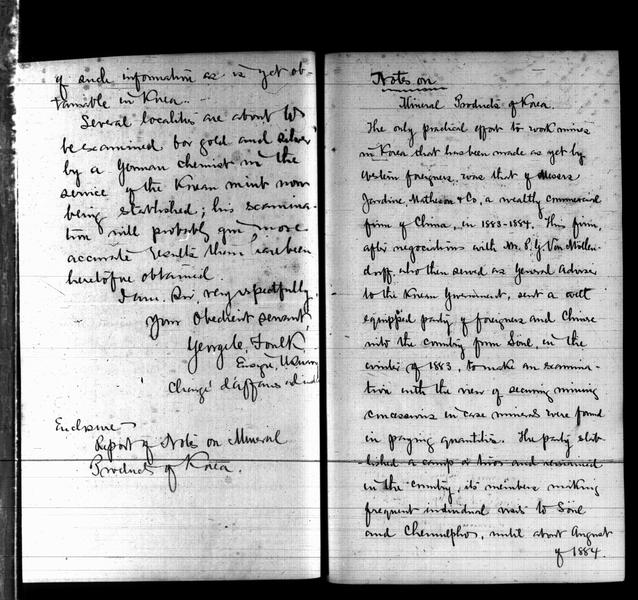 of such information as is yet ob-
tainable in Korea.
Several localities are about to
be examined for gold and silver
by a German chemist in the
service of the Korean mint now
being established; his examina-
tion will probably give more
accurate results than have been
heretofore obtained.
I am, Sir, very respectfully
Your Obedient servant,
George C. Foulk,
Ensign, U.S. Navy
Chargé d'affaires ad int
Enclosure
Report of Notes on Mineral
Products of Korea.
Notes on
Mineral Products of Korea.
The only practical effort to work mines
in Korea that has been made as yet by
Western foreigners, was that of Messrs
Jardine, Matheson & Co, a wealthy commercial
firm of China, in 1883-1884. This firm,
after negociations with Mr. P. G. Von Mollen-
dorff, who then served as General Adviser
to the Korean Government, sent a well
equipped party of foreigners and Chinese
into the country from Soul, in the
winter of 1883, to make an examina-
tion with the view of securing mining
concessions in case minerals were found
in paying quantities. The party estab-
lished a camp or two and remained
in the country, its members making
frequent individual visits to Soul
and Chemulpho, until about August
of 1884.